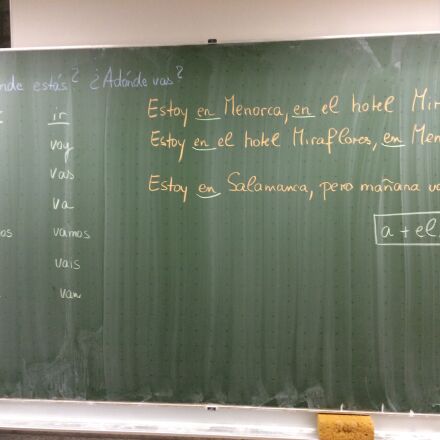 estás? ¿Adónde vas?
Estoy en Menorca, en el hotel
Estoy en el hotel Miraflores, en
Estoy en Salamanca, pero mañana
a + el
ir
voy
vas
va
vamos
vais
van